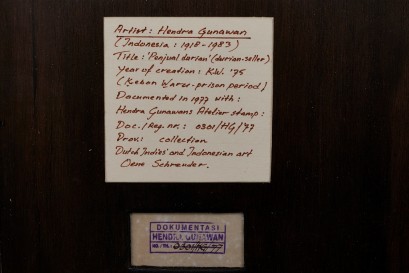 Artist: Hendra Gunawan
(Indonesia: 1918-1983)
Title: 'Penjual durian' (durian-seller)
Year of creation: KW. '75
(Kebon Waru-prison period)
Documented in 1977 with:
Hendra Gunawans Atelier stamp:
Doc./Reg. nr.: 0301/HG/77
Prov.: collection
Dutch Indies' and Indonesian art
Oene Schrender.
DOKUMENTASI
HENDRA GUNAWAN